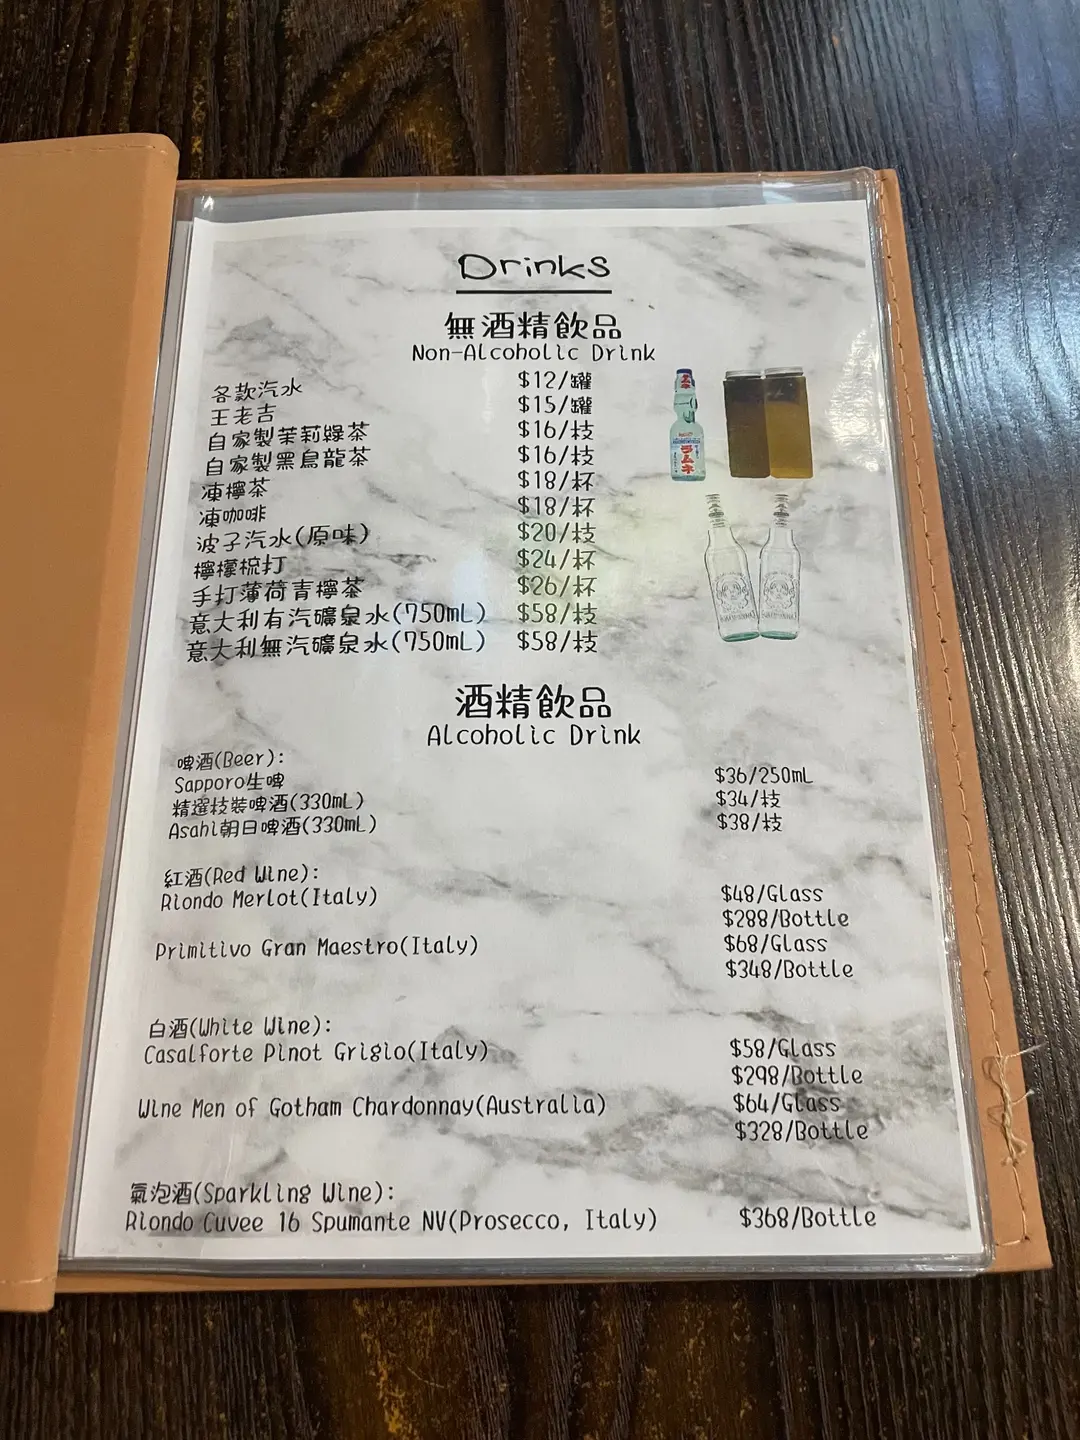 Drinks
無酒精飲品
Non-Alcoholic Drink
各款汽水 $12/罐
王老吉 $15/罐
自家製茉莉綠茶 $16/枝
自家製黑烏龍茶 $16/枝
凍檸茶 $18/杯
凍咖啡 $18/杯
波子汽水(原味) $20/枝
檸檬梳打 $24/杯
手打薄荷青檸茶 $26/杯
意大利有汽礦泉水(750mL) $58/枝
意大利無汽礦泉水(750mL) $58/枝
ラムネ
酒精飲品
Alcoholic Drink
啤酒(Beer):
Sapporo生啤 $36/250mL
精選枝裝啤酒(330mL) $34/枝
Asahi朝日啤酒(330mL) $38/枝
紅酒(Red Wine):
Riondo Merlot(Italy) $48/Glass
$288/Bottle
Primitivo Gran Maestro(Italy) $68/Glass
$348/Bottle
白酒(White Wine):
Casalforte Pinot Grigio(Italy) $58/Glass
$298/Bottle
Wine Men of Gotham Chardonnay(Australia) $64/Glass
$328/Bottle
氣泡酒(Sparkling Wine):
Riondo Cuvee 16 Spumante NV(Prosecco, Italy) $368/Bottle